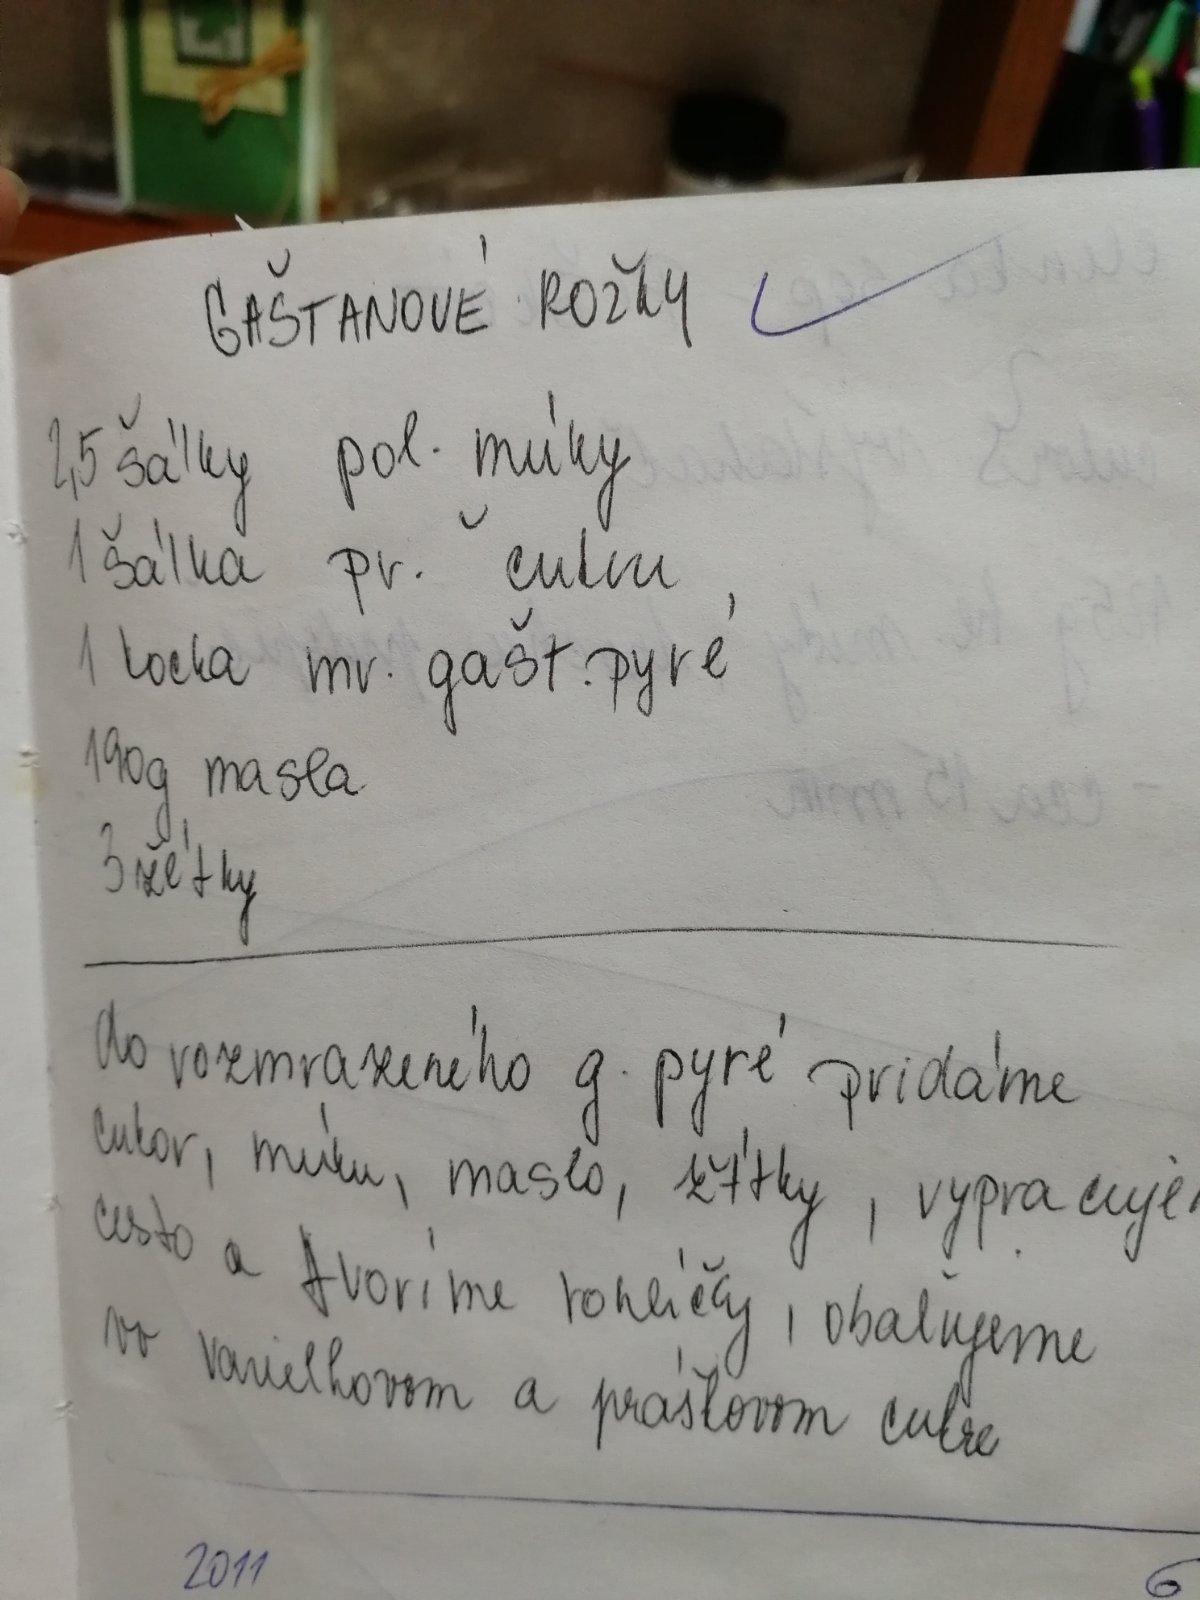 GAŠTANOVÉ ROŽKY
2,5 šálky pol. múky
1 šálka pr. cukru
1 kocka mr. gašt. pyré
190g masla
3 žĺtky
do rozmrazeného g. pyré pridáme
cukor, múku, maslo, žĺtky, vypracujem
cesto a tvoríme rohlíčky, obaľujeme
vo vanielkovom a práškovom cukre
2011
6